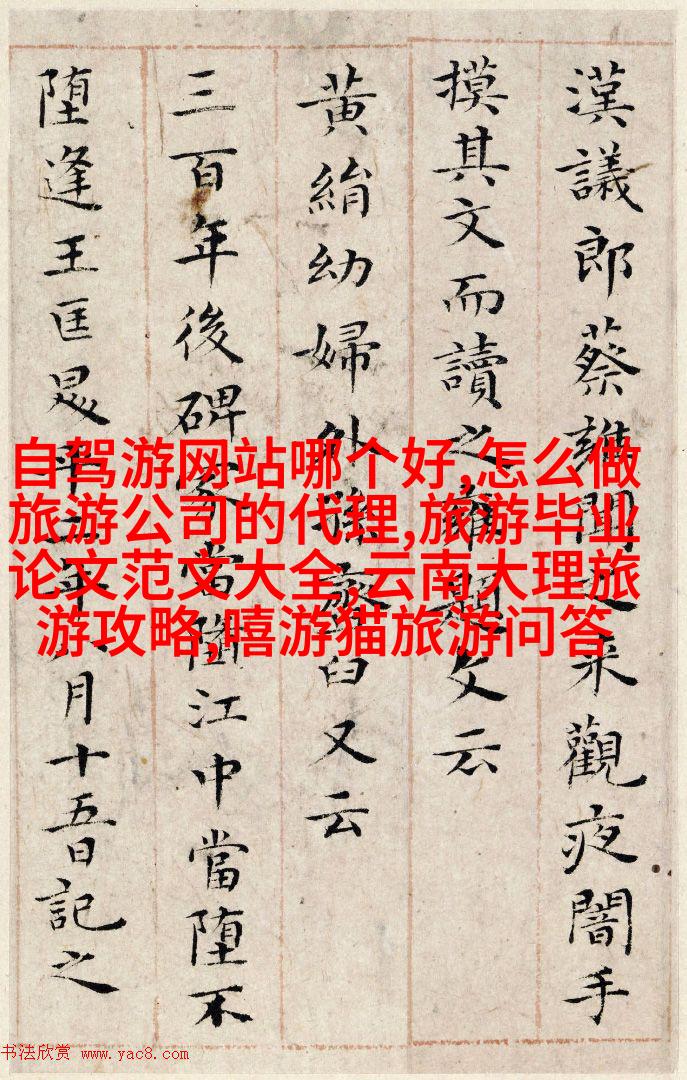 漢議郎蔡雝聞之来觀夜闇手
摸其文而讀之雝題文云
黃絹幼婦外孫齏臼又云
三百年後碑冢當墮江中當墮不
墮逢王匡昇平二年八月十五日記之
自驾游网站哪个好,怎么做
旅游公司的代理,旅游毕业
论文范文大全,云南大理旅
游攻略,嘻游猫旅游问答
书法欣赏 www.yac8.com